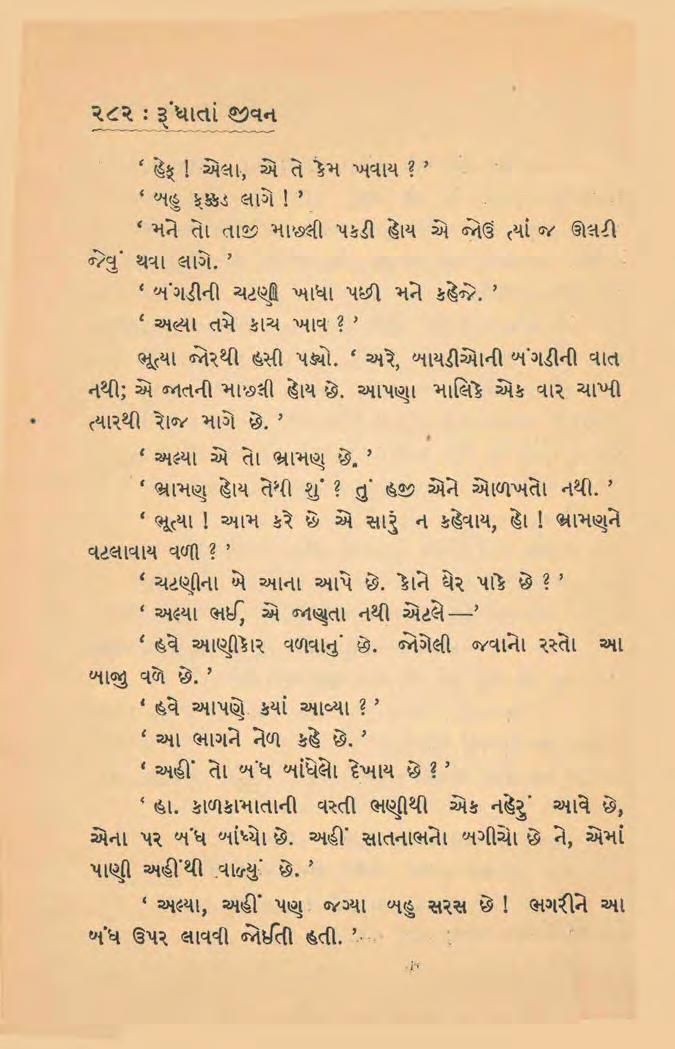 ૨૮૨ : રૂંધાતાં જીવન
‘ હેફ ! એલા, એ તે કેમ ખવાય ? ’
‘ બહુ ફક્કડ લાગે ! ’
‘ મને તો તાજી માછલી પકડી હોય એ જોઉં ત્યાં જ ઊલટી
જેવું થવા લાગે. ’
‘ બંગડીની ચટણી ખાધા પછી મને કહેજે. ’
‘ અલ્યા તમે કાચ ખાવ ? ’
ભૂત્યા જોરથી હસી પડ્યો. ‘ અરે, બાયડીઓની બંગડીની વાત
નથી; એ જાતની માછલી હોય છે. આપણા માલિકે એક વાર ચાખી
ત્યારથી રોજ માગે છે. ’
‘ અલ્યા એ તો ભ્રામણ છે. ’
‘ ભ્રામણ હોય તેથી શું ? તું હજી એને ઓળખતો નથી. ’
‘ ભૂત્યા ! આમ કરે છે એ સારું ન કહેવાય, હો ! ભ્રામણને
વટલાવાય વળી ? ’
‘ ચટણીના બે આના આપે છે. કોને ઘેર પાકે છે ? ’
‘ અલ્યા ભઈ, એ જાણતા નથી એટલે—’
‘ હવે આણીકોર વળવાનું છે. જોગેલી જવાનો રસ્તો આ
બાજુ વળે છે. ’
‘ હવે આપણે કયાં આવ્યા ? ’
‘ આ ભાગને નેળ કહે છે. ’
‘ અહીં તો બંધ બાંધેલો દેખાય છે ? ’
‘ હા. કાળકામાતાની વસ્તી ભણીથી એક નહેરું આવે છે,
એના પર બંધ બાંધ્યો છે. અહીં સાતનાભનો બગીચો છે ને, એમાં
પાણી અહીંથી વાળ્યું છે. ’
‘ અલ્યા, અહીં પણ જગ્યા બહુ સરસ છે ! ભગરીને આ
બંધ ઉપર લાવવી જોઈતી હતી. ’